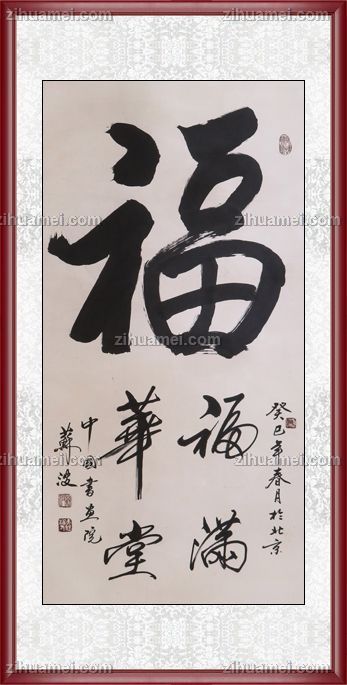 zihuamei.com zihuamei.com
福
癸巳年春月於北京
福滿
華堂
中國書画院
蘇波
zihuamei.com
zihuamei.com
zihuamei.com
zihuamei.com
zihuamei.com
zihuamei.com zihuamei.com